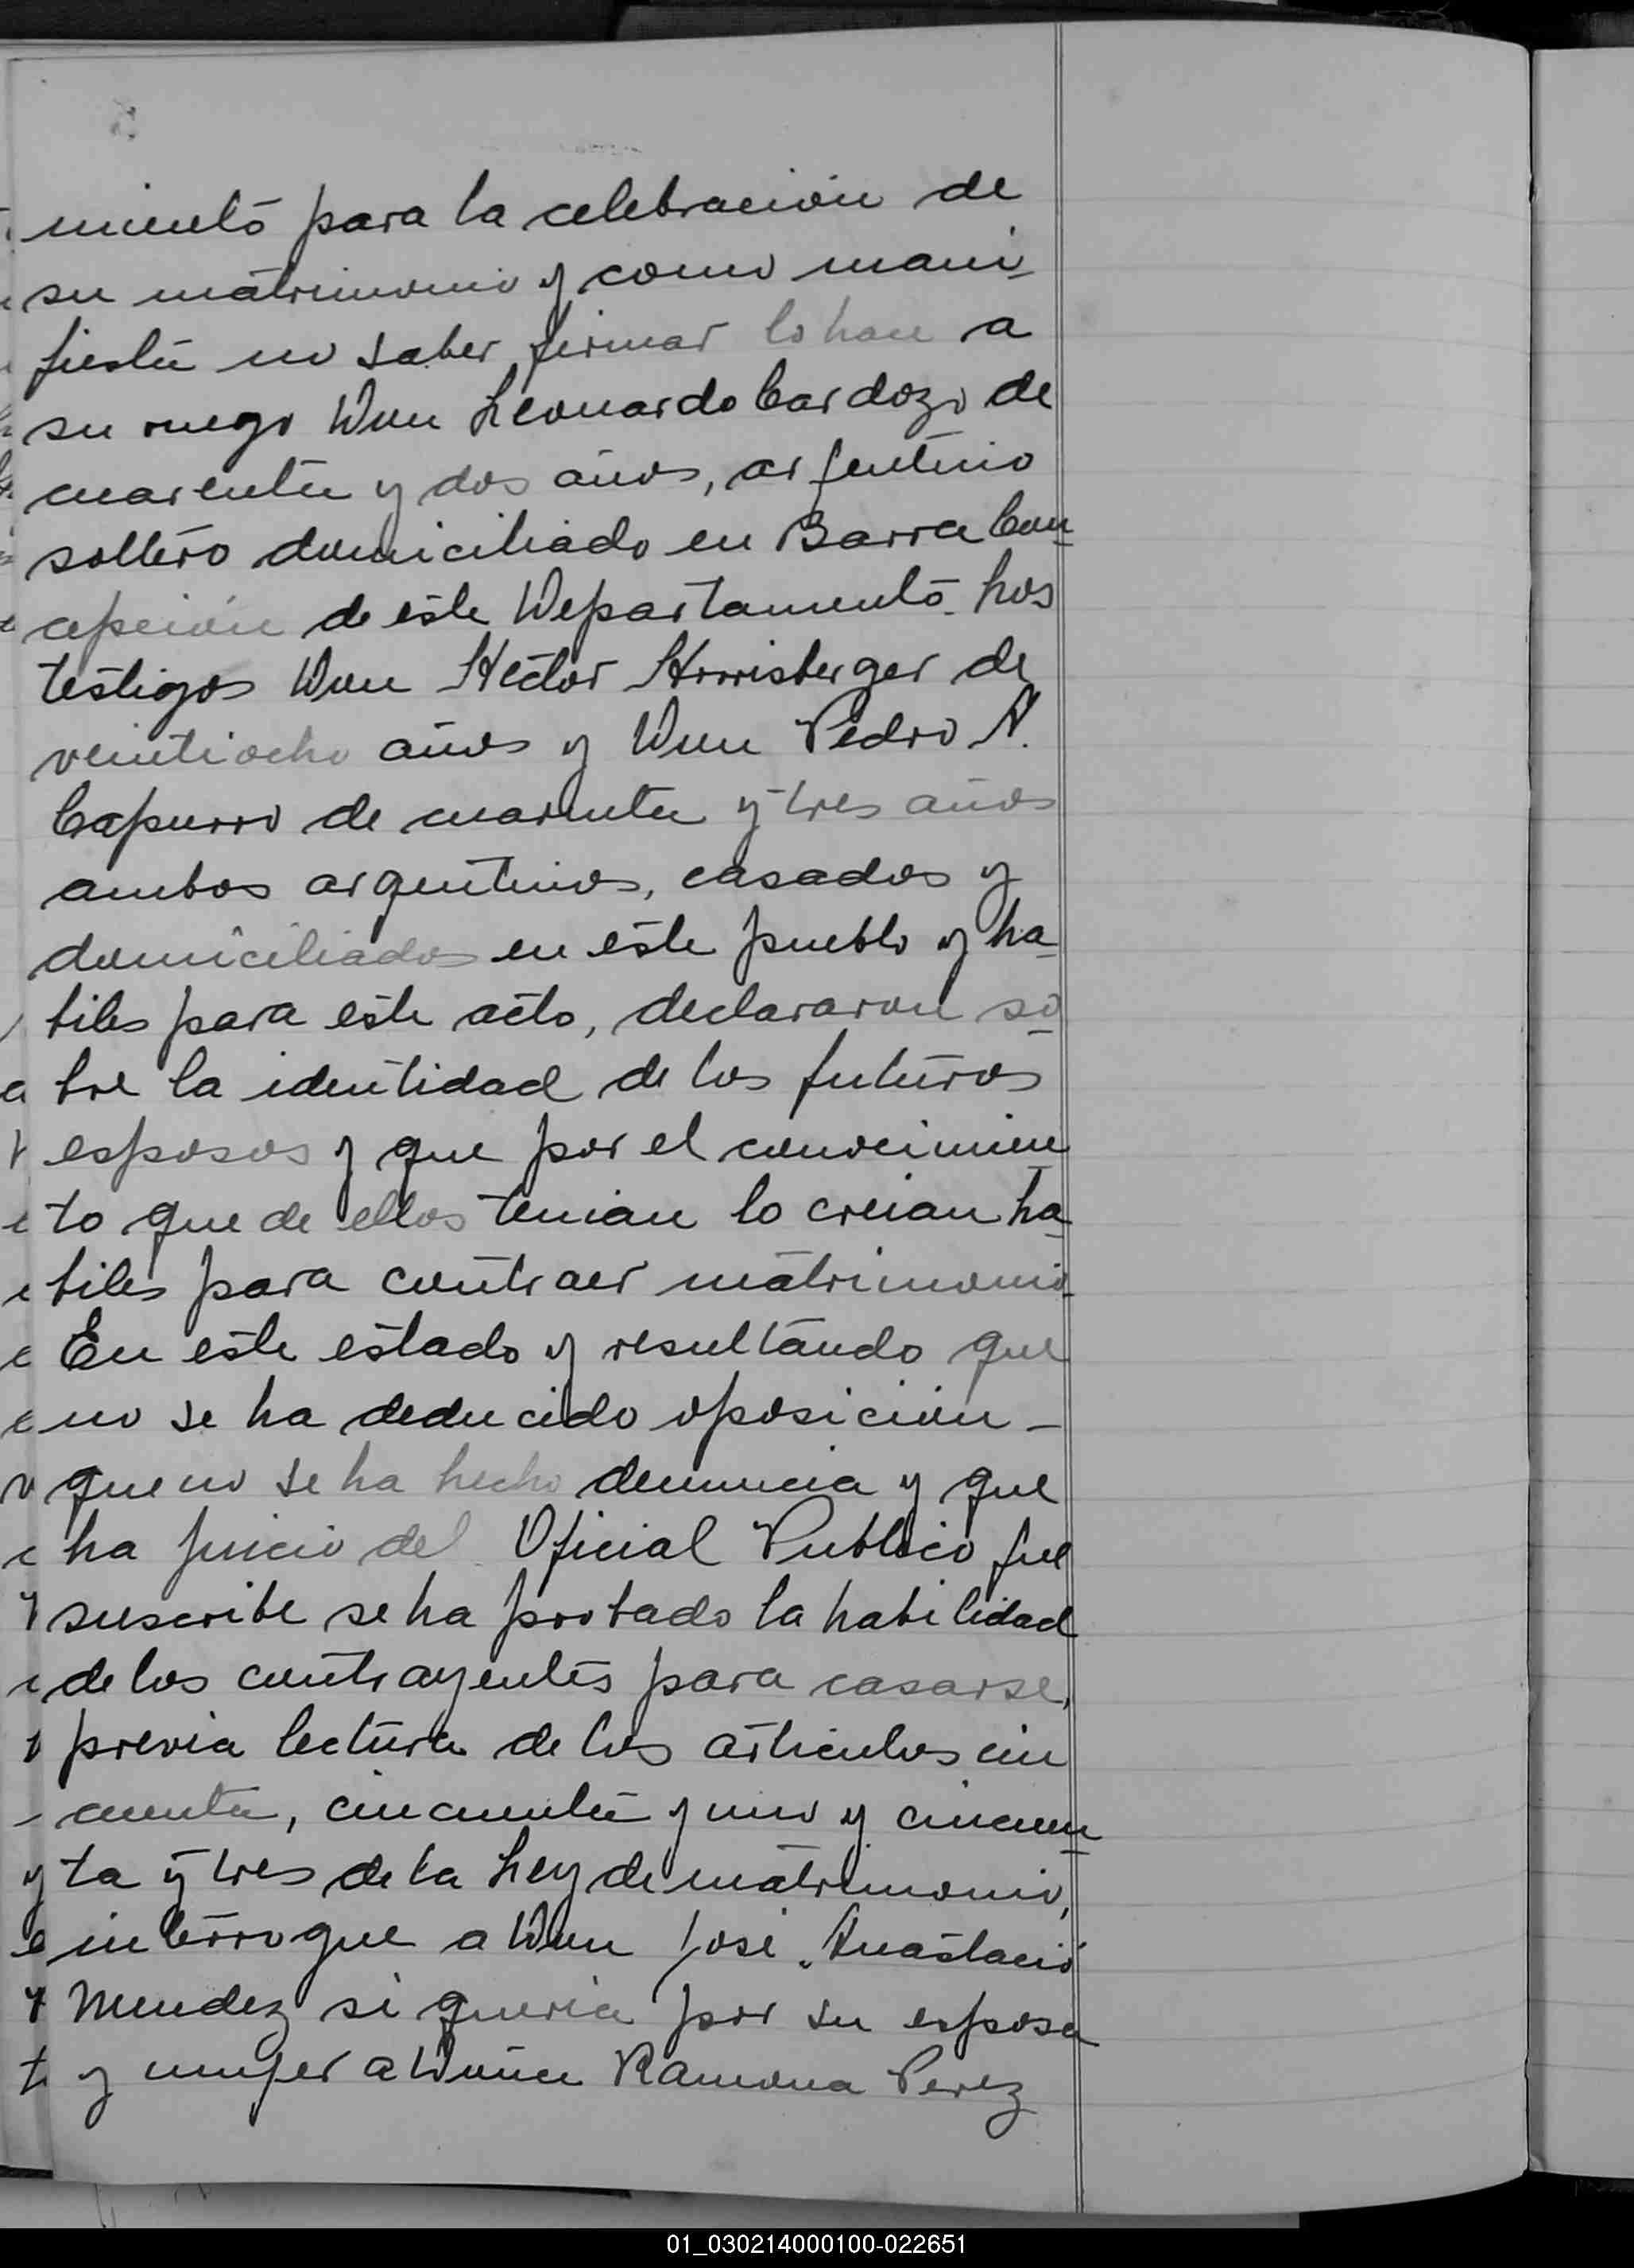 miento para la celebración de
su matrimonio y como mani-
fiesta no saber firmar lo hace a
su ruego Don Leonardo Cardozo de
cuarenta y dos años, argentino
soltero domiciliado en Barra Con-
cepción de este Departamento. Los
testigos Don Héctor de
veintiocho años y Don Pedro A.
Capurro de cuarenta y tres años
ambos argentinos, casados y
domiciliados en este pueblo y ha-
biles para este acto, declararon so-
bre la identidad de los futuros
esposos y que por el conocimien-
to que de ellos tenian lo creian ha-
biles para contraer matrimonio
En este estado y resultando que
no se ha deducido oposición -
que no se ha hecho denuncia y que
ha juicio del Oficial Publico que
suscribe se ha probado la habilidad
de los contrayentes para casarse,
previa lectura de los articulos cin
cuenta, cincuenta y uno y cincuen-
ta y tres de la Ley de matrimonio,
interrogue a Don José Anastacio
Mendez si queria por su esposa
y mujer a Doña Ramona Perez
01_030214000100-022651